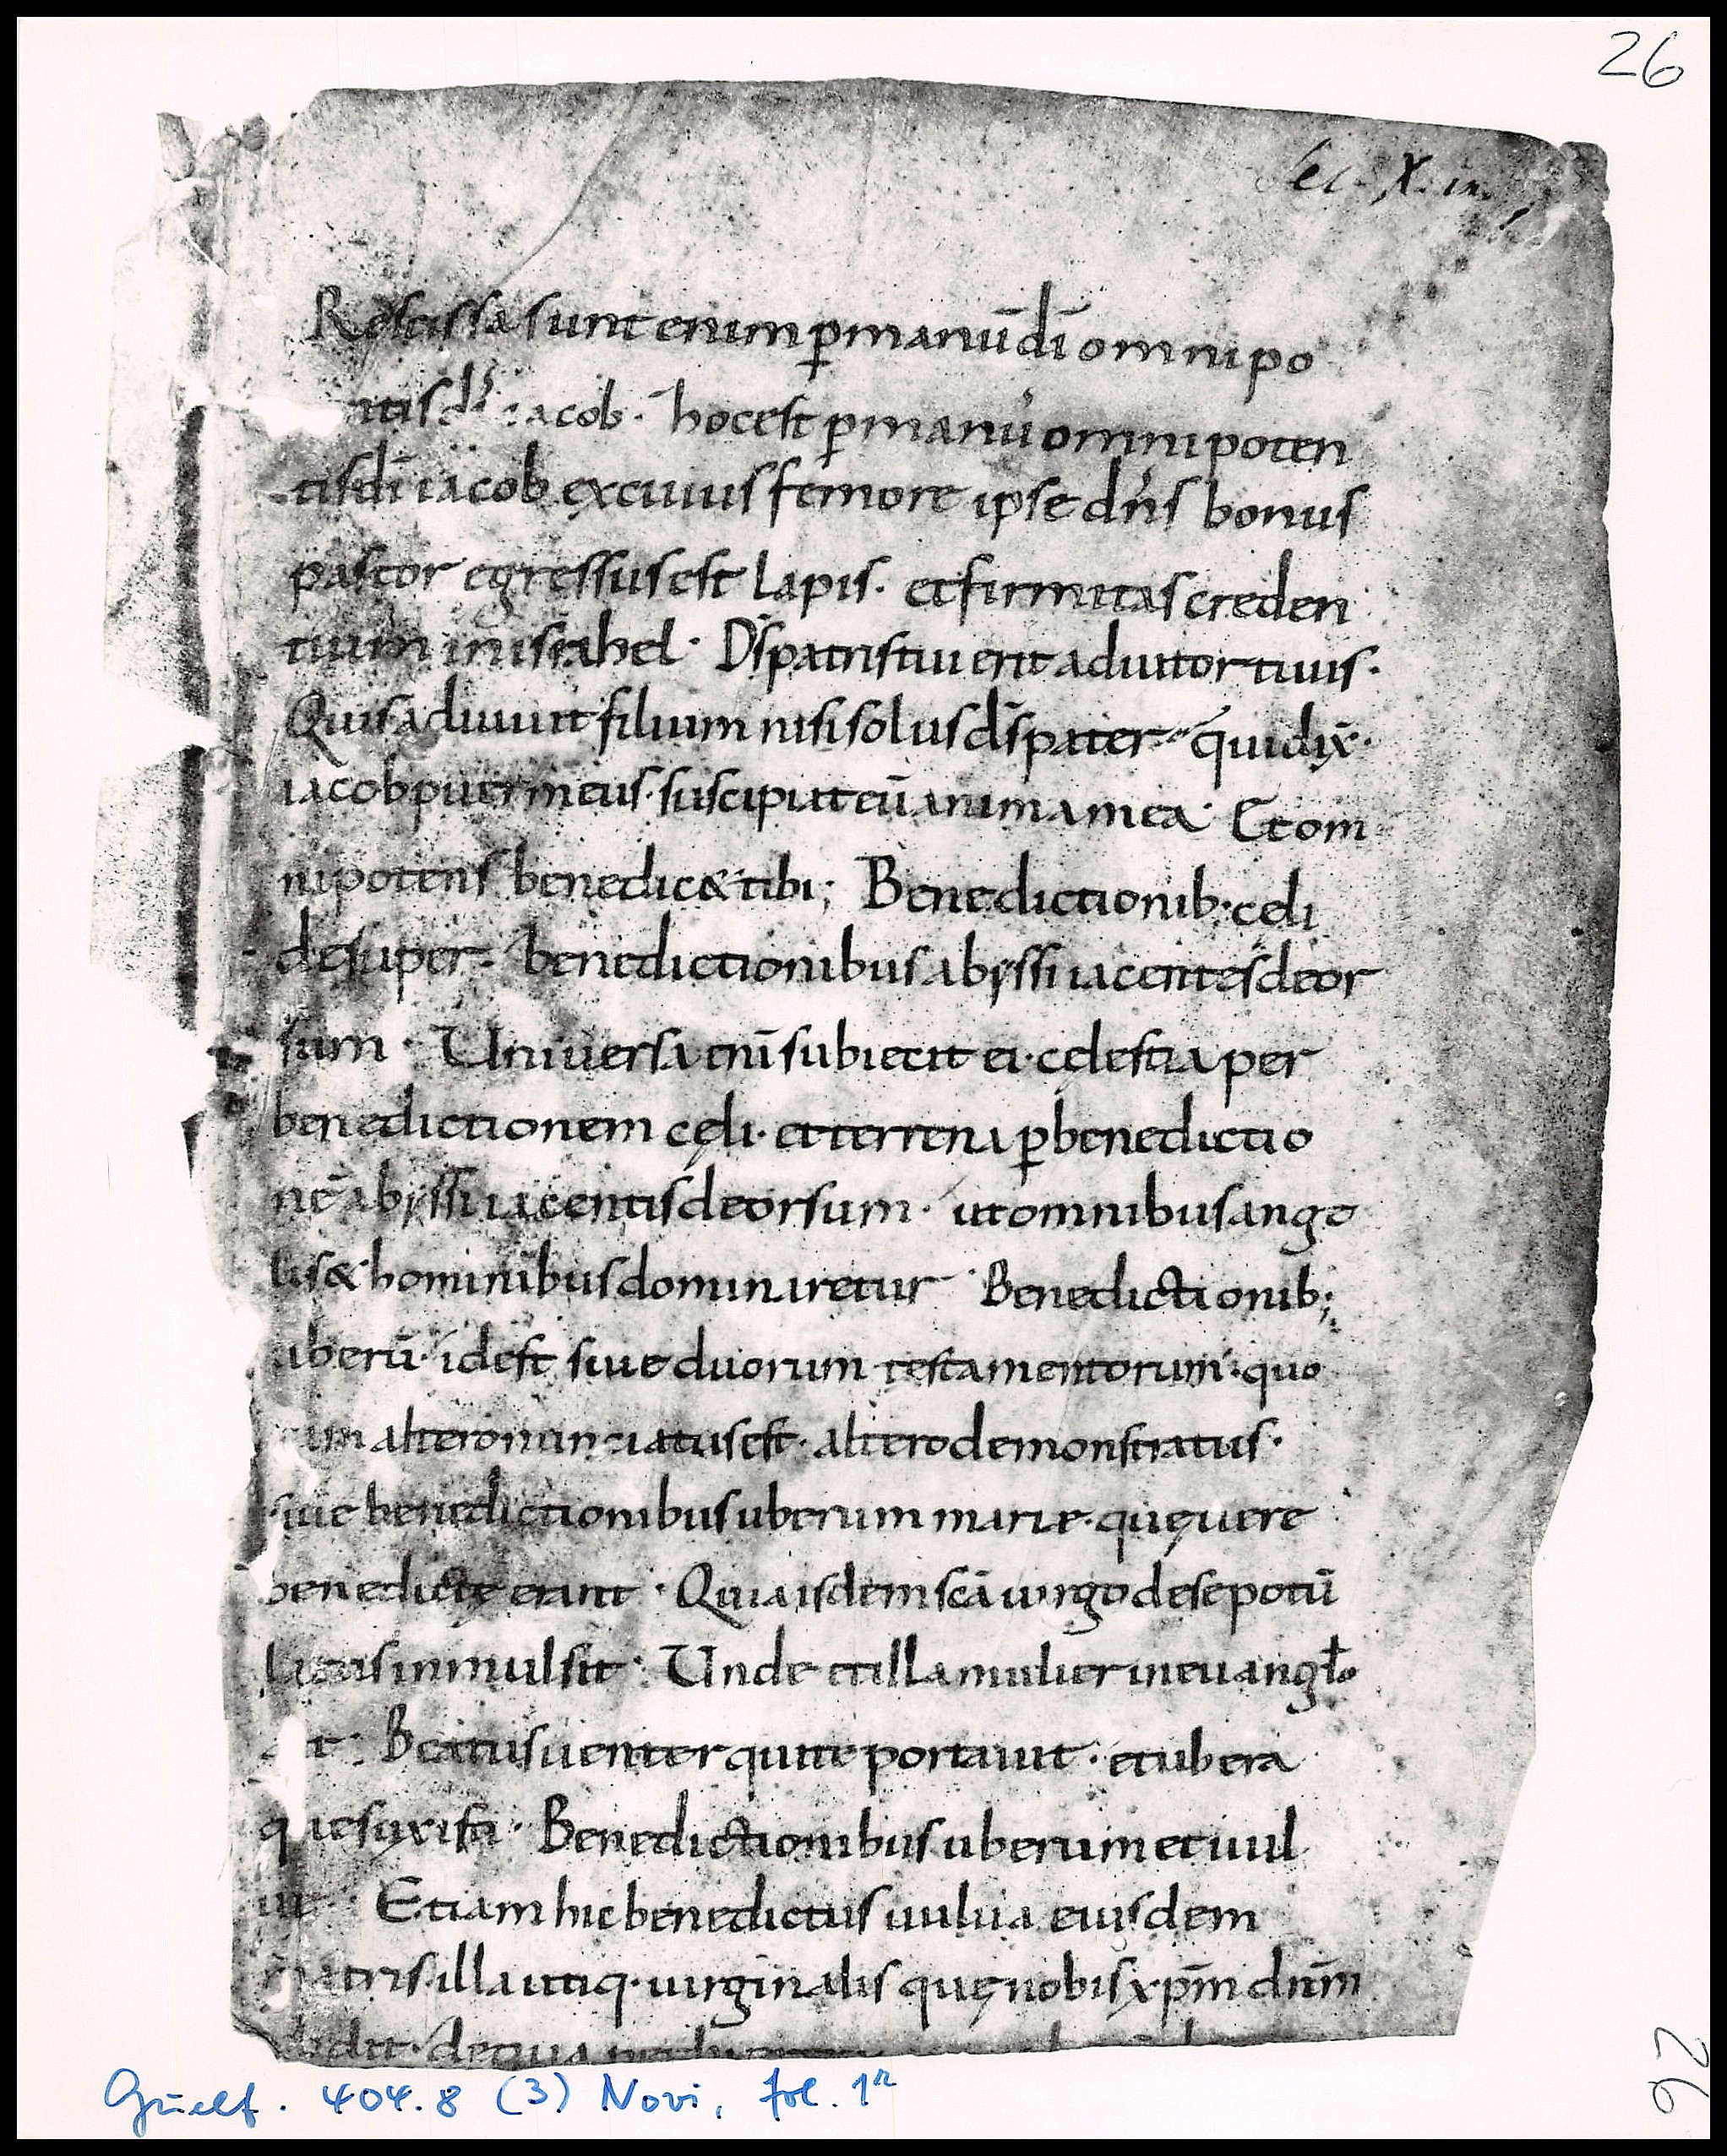 26
Sec. X. in.
Rescissa sunt enim p̲manū dī omnipo
ntis ds iacob · hoc est p̲manū omnipoten
tis dī iacob ex cuius femore ipse dn̄s bonus
pastor egressus est lapis · et firmitas creden
tium in isrāhel · Ds̄ patris tui erit adiutor tuus ·
Quis adiuuit filium nisi solus ds̄ pater · qui dix̄ ·
iacob puer meus · suscipiat eū anima mea · Et om
nipotens benedic& tibi ; Benedictionib; cęli
desuper · benedictionibus abyssi iacentes deor
sum · Uniuersa enī subiecit ei · cęlestia per
benedictionem cęli · et terrena p̲benedictio
nē abyssi iacentis deorsum · ut omnibus ange
lis & hominibus dominaretur · Benedictionib;
uberū · id est siue duorum testamentorum · quo
rum altero nuntiatus est · altero demonstratus ·
siue benedictionibus uberum marię · quę uere
benedictę erant · Quia isdem scā uirgo dese potū
lactis inmulsit · Unde et illa mulier in euangło
ait · Beatus uenter qui te portauit · et ubera
que suxisti · Benedictionibus uberum et uul
uę · Etiam hic benedictus uulua eiusdem
matris · illa utiq · uirginalis quę nobis xp̄m dn̄m
edidit · de qua
Guelf. 404.8 (3) Novi, fol. 1r
26